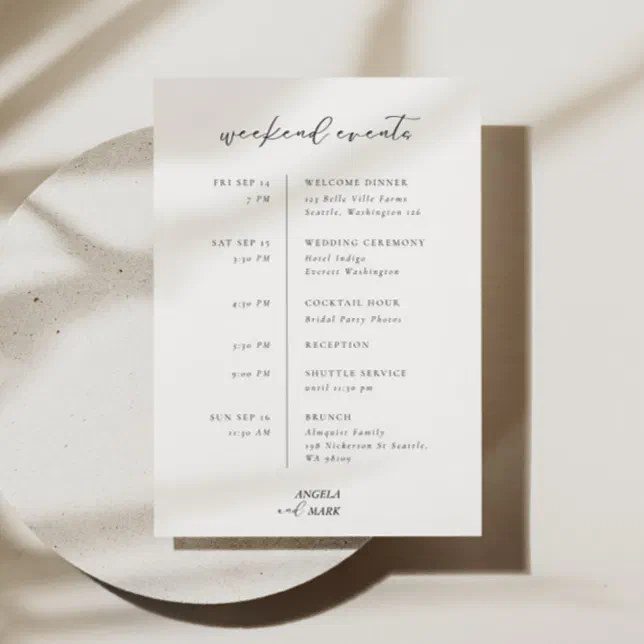 weekend events
FRI SEP 14 WELCOME DINNER
7 PM 123 Belle Ville Farms
Seattle, Washington 126
SAT SEP 15 WEDDING CEREMONY
3:30 PM Hotel Indigo
Everett Washington
4:30 PM COCKTAIL HOUR
Bridal Party Photos
5:30 PM RECEPTION
9:00 PM SHUTTLE SERVICE
until 11:30 pm
SUN SEP 16 BRUNCH
11:30 AM Almquist Family
198 Nickerson St Seattle,
WA 98109
ANGELA
and MARK